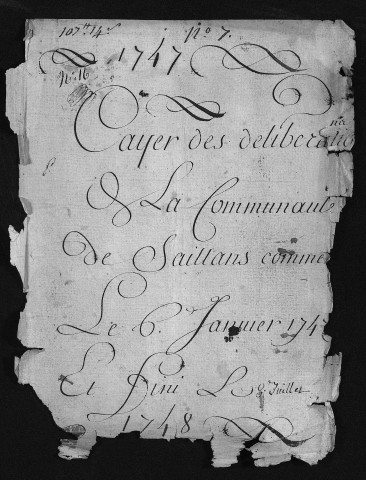 107ᵗᵗ 14ˢ nº 7.
1747
nº 16
Cayer des deliberatio
De La Communaut
de Saillans comme
Le 6. Janvier 174
Et fini Le 8 Juillet
1748